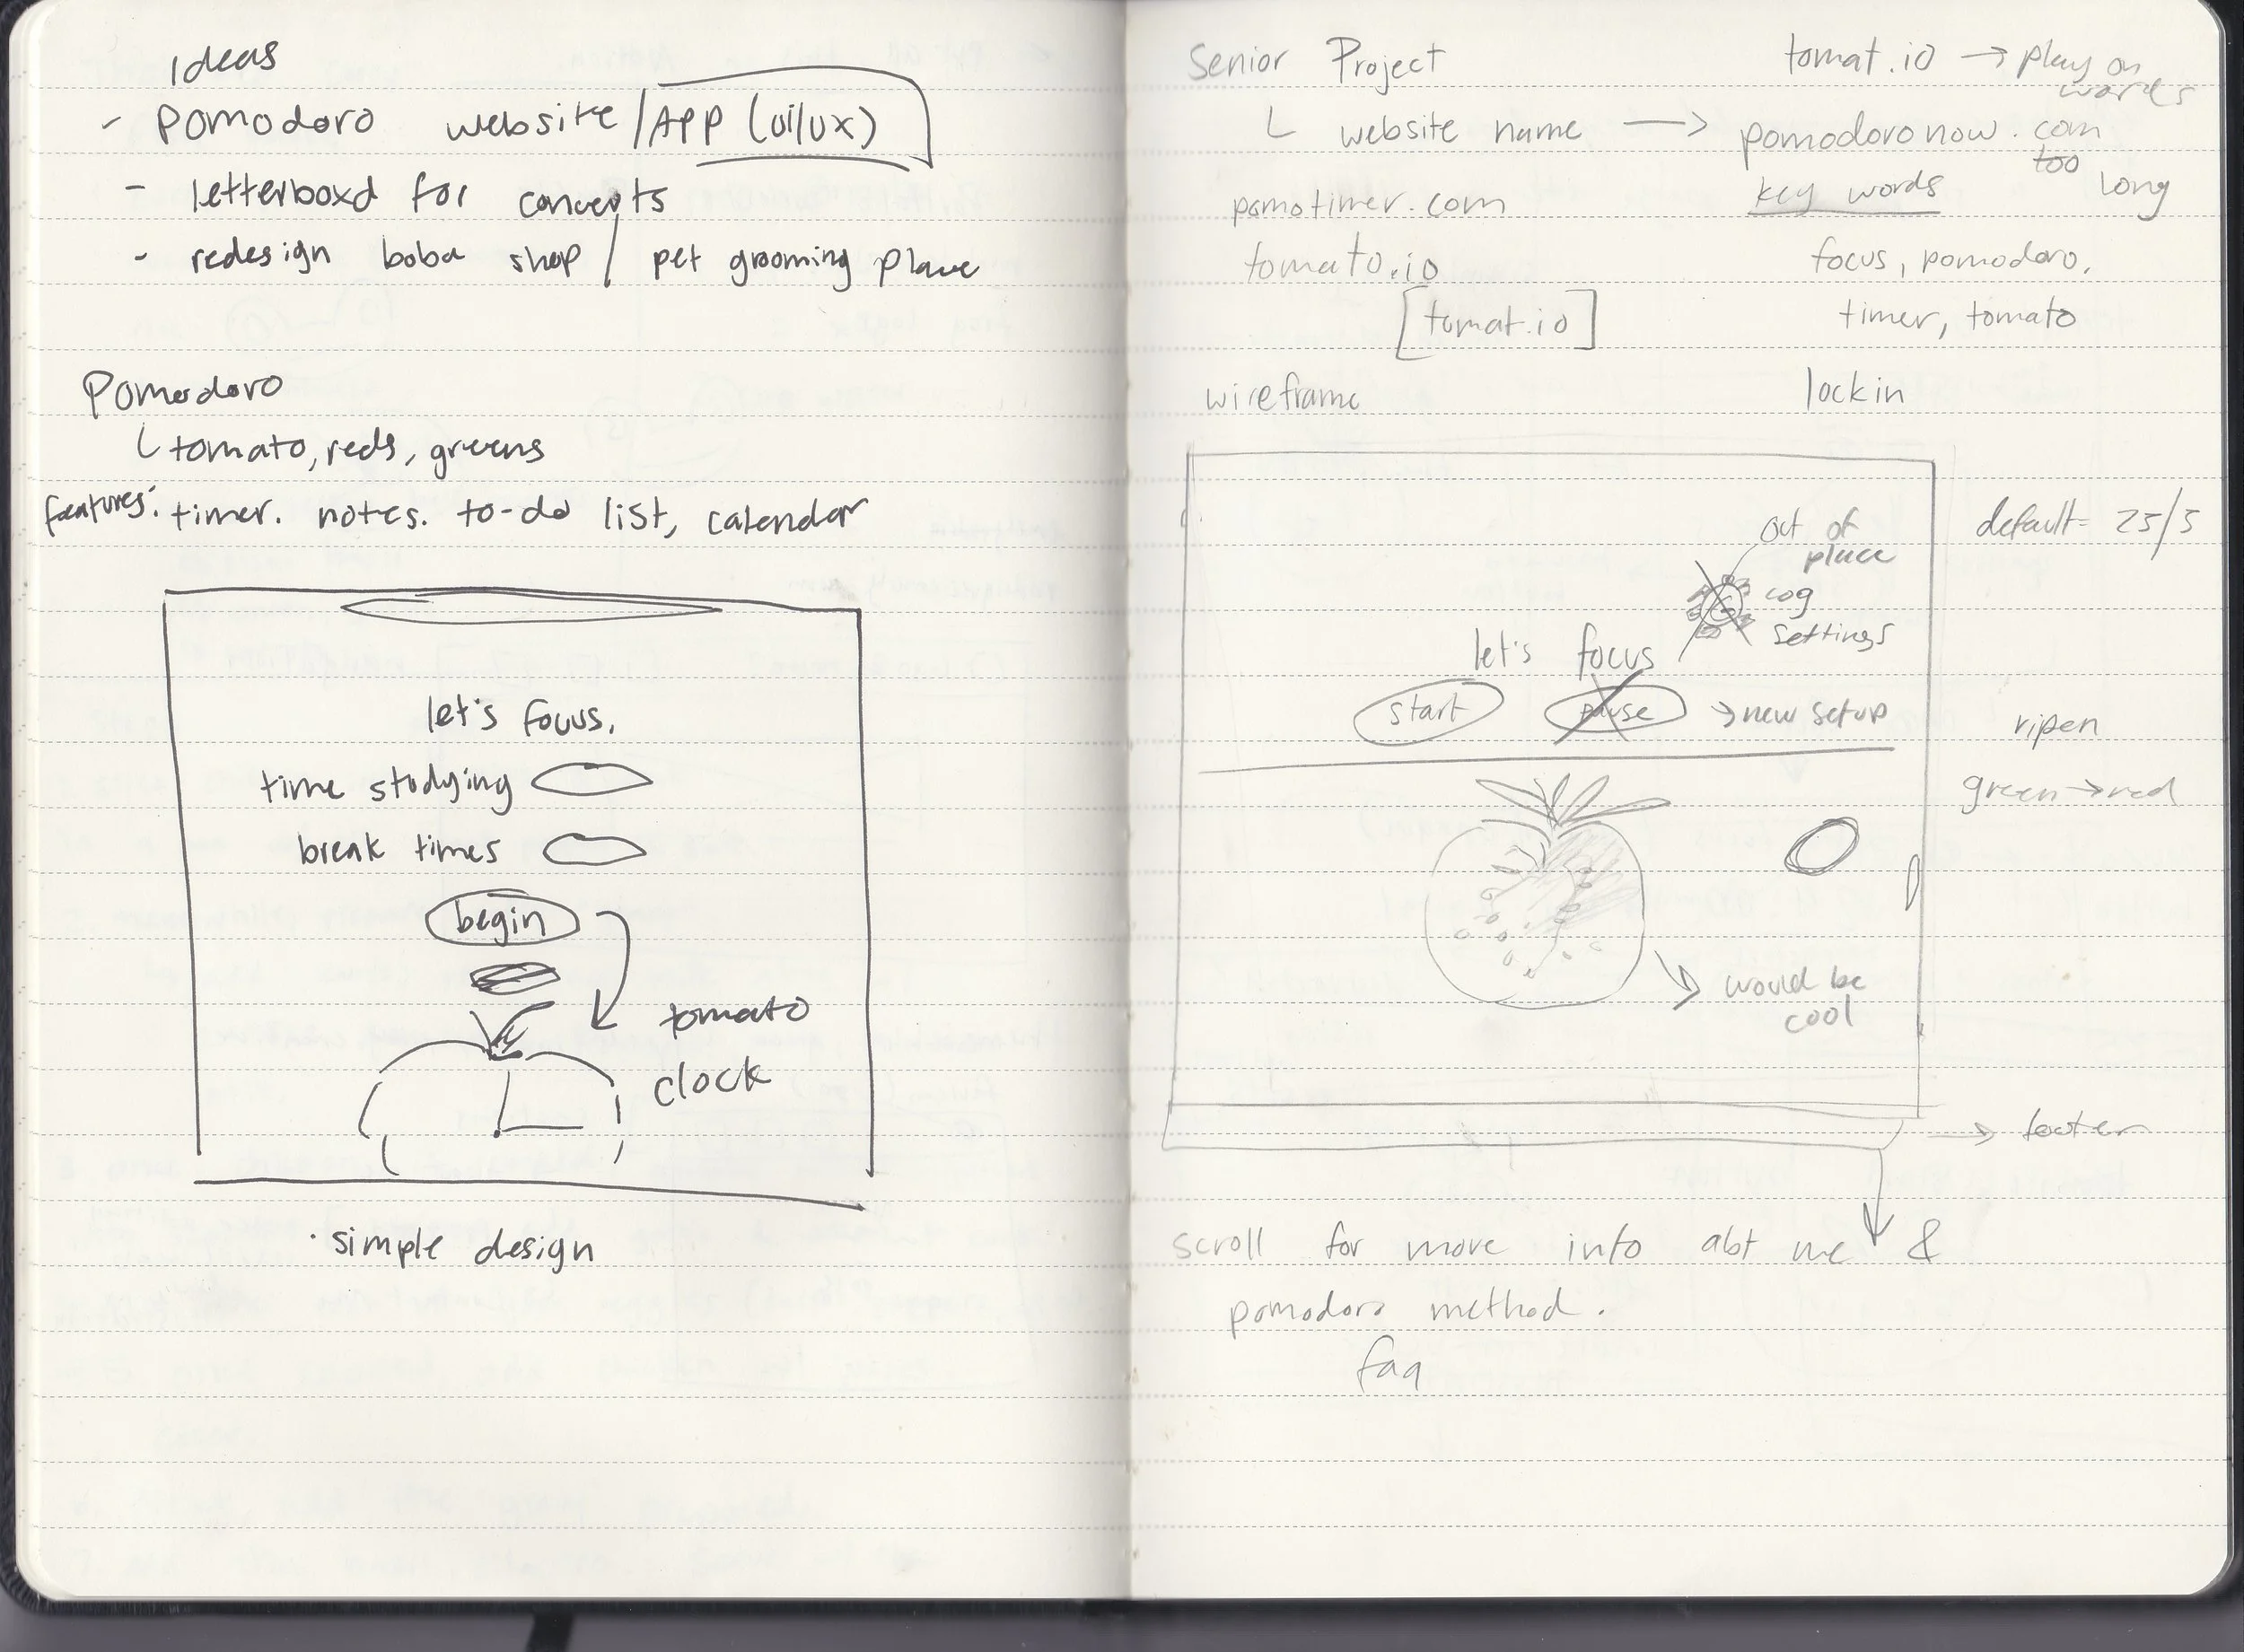 Ideas
- Pomodoro website / App (ui/ux)
- letterboxd for concepts
- redesign boba shop / pet grooming place
Pomodoro
tomato, reds, greens
features: timer. notes. to-do list, calendar
let's focus.
time studying
break times
begin
tomato
clock
· simple design
Senior Project
website name → pomodoronow.com
too long
tomat.io → play on words
pomotimer.com
tomato.io
[tomat.io]
key words
focus, pomodoro,
timer, tomato
lockin
wireframe
default = 25/5
out of place
cog
settings
let's focus
start
pause
→ new setup
ripen
green → red
would be
cool
→ footer
scroll for more info abt me &
pomodoro method.
faq